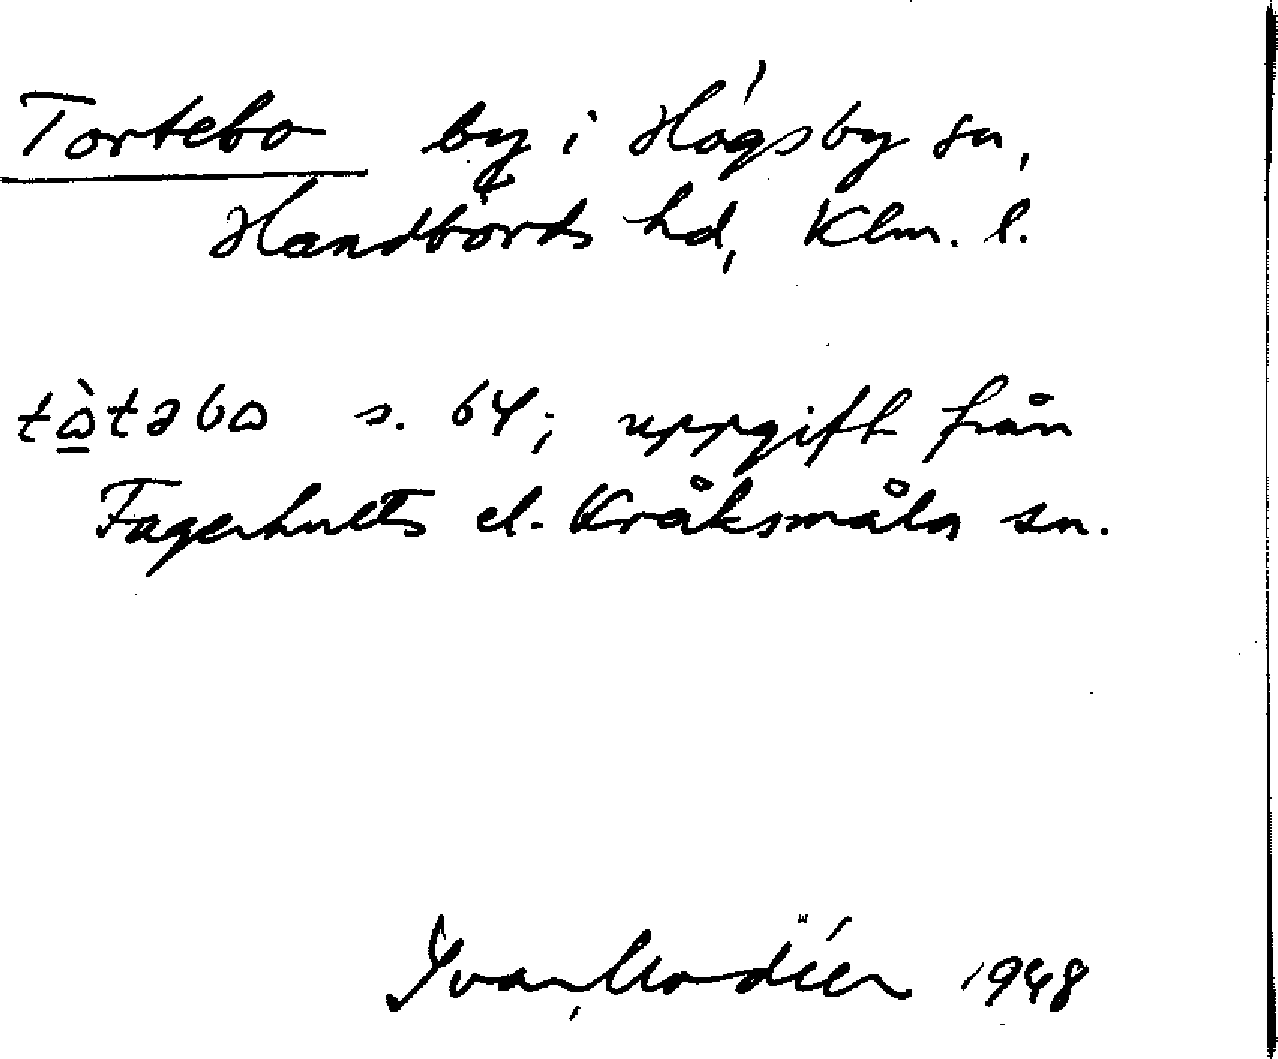 Tortebo by i Högsby sn,
Handbörds hd, Klm. l.
tò̱təbo s. 64; uppgift från
Fagerhults el. Kråksmåla sn.
Ivar Modéer 1948